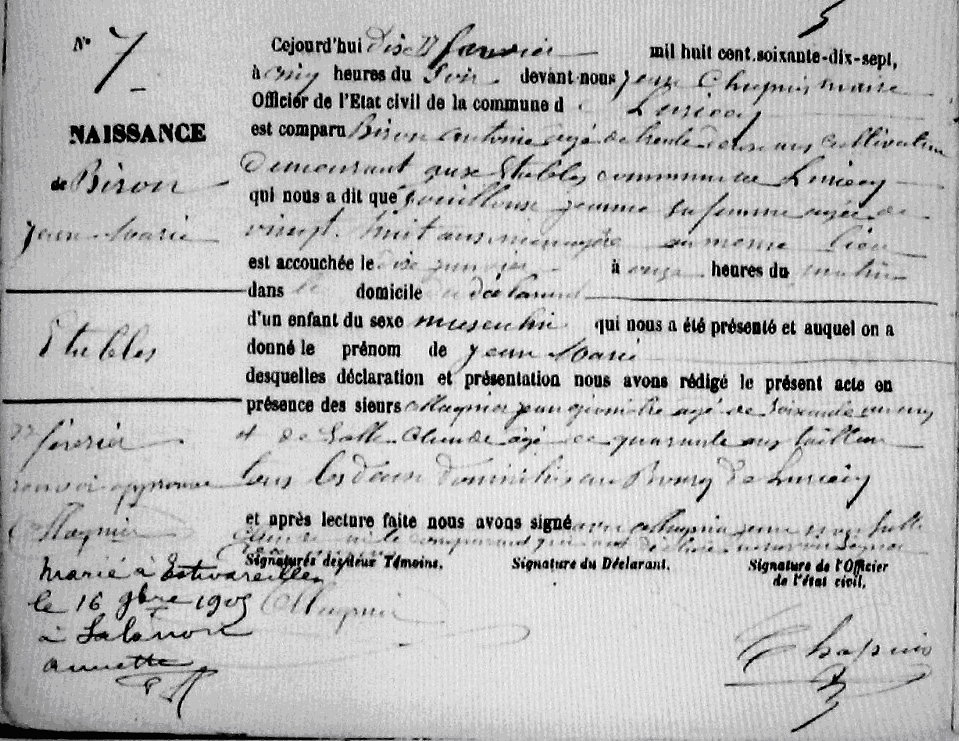 N° 7
NAISSANCE
de Biron
Jean Marie
Etables
Cejourd'hui dix janvier mil huit cent soixante-dix-sept,
à cinq heures du soir devant nous Jean Chapuis maire
Officier de l'Etat civil de la commune d Luriecq
est comparu Biron Antoine agé de trente ans cultivateur
demeurant aux Etables commune de Luriecq
qui nous a dit que Jeanne sa femme agée de
vingt huit ans ménagère au meme lieu
est accouchée le dix janvier à onze heures du matin
dans le domicile du déclarant
d'un enfant du sexe masculin qui nous a été présenté et auquel on a
donné le prénom de Jean Marie
desquelles déclaration et présentation nous avons rédigé le présent acte en
présence des sieurs Magnier jean agé de soixante
et de Salle Claude agé de quarante ans tailleur
tous les deux domiciliés au Bourg de Luriecq
et après lecture faite nous avons signé avec Magnier
Signatures des deux Témoins. Signature du Déclarant. Signature de l'Officier
de l'état civil.
renvoi approuvé
Magnier
Magnier
Chapuis
Marié à Estivareilles
le 16 9bre 1905
à
annette